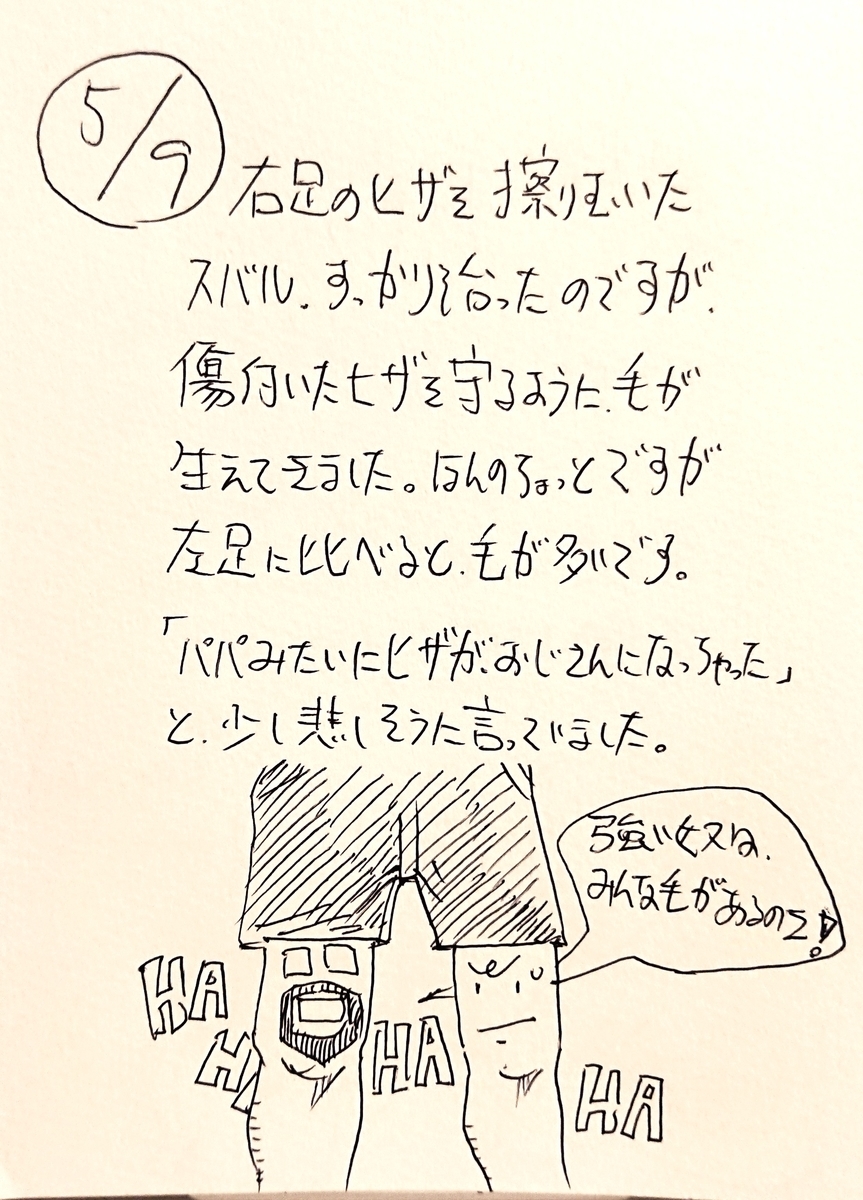 5/9
右足のヒザを擦りむいた
スバル.すっかり治ったのですが.
傷付いたヒザを守るように.毛が
生えてきました。ほんのちょっとですが
左足に比べると.毛が多いです。
「パパみたいにヒザが.おじさんになっちゃった」
と.少し悲しそうに言っていました。
強い奴は.
みんな毛が
あるのさ!
HA
HA
HA
HA